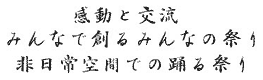 感動と交流
みんなで創るみんなの祭り
非日常空間での踊る祭り